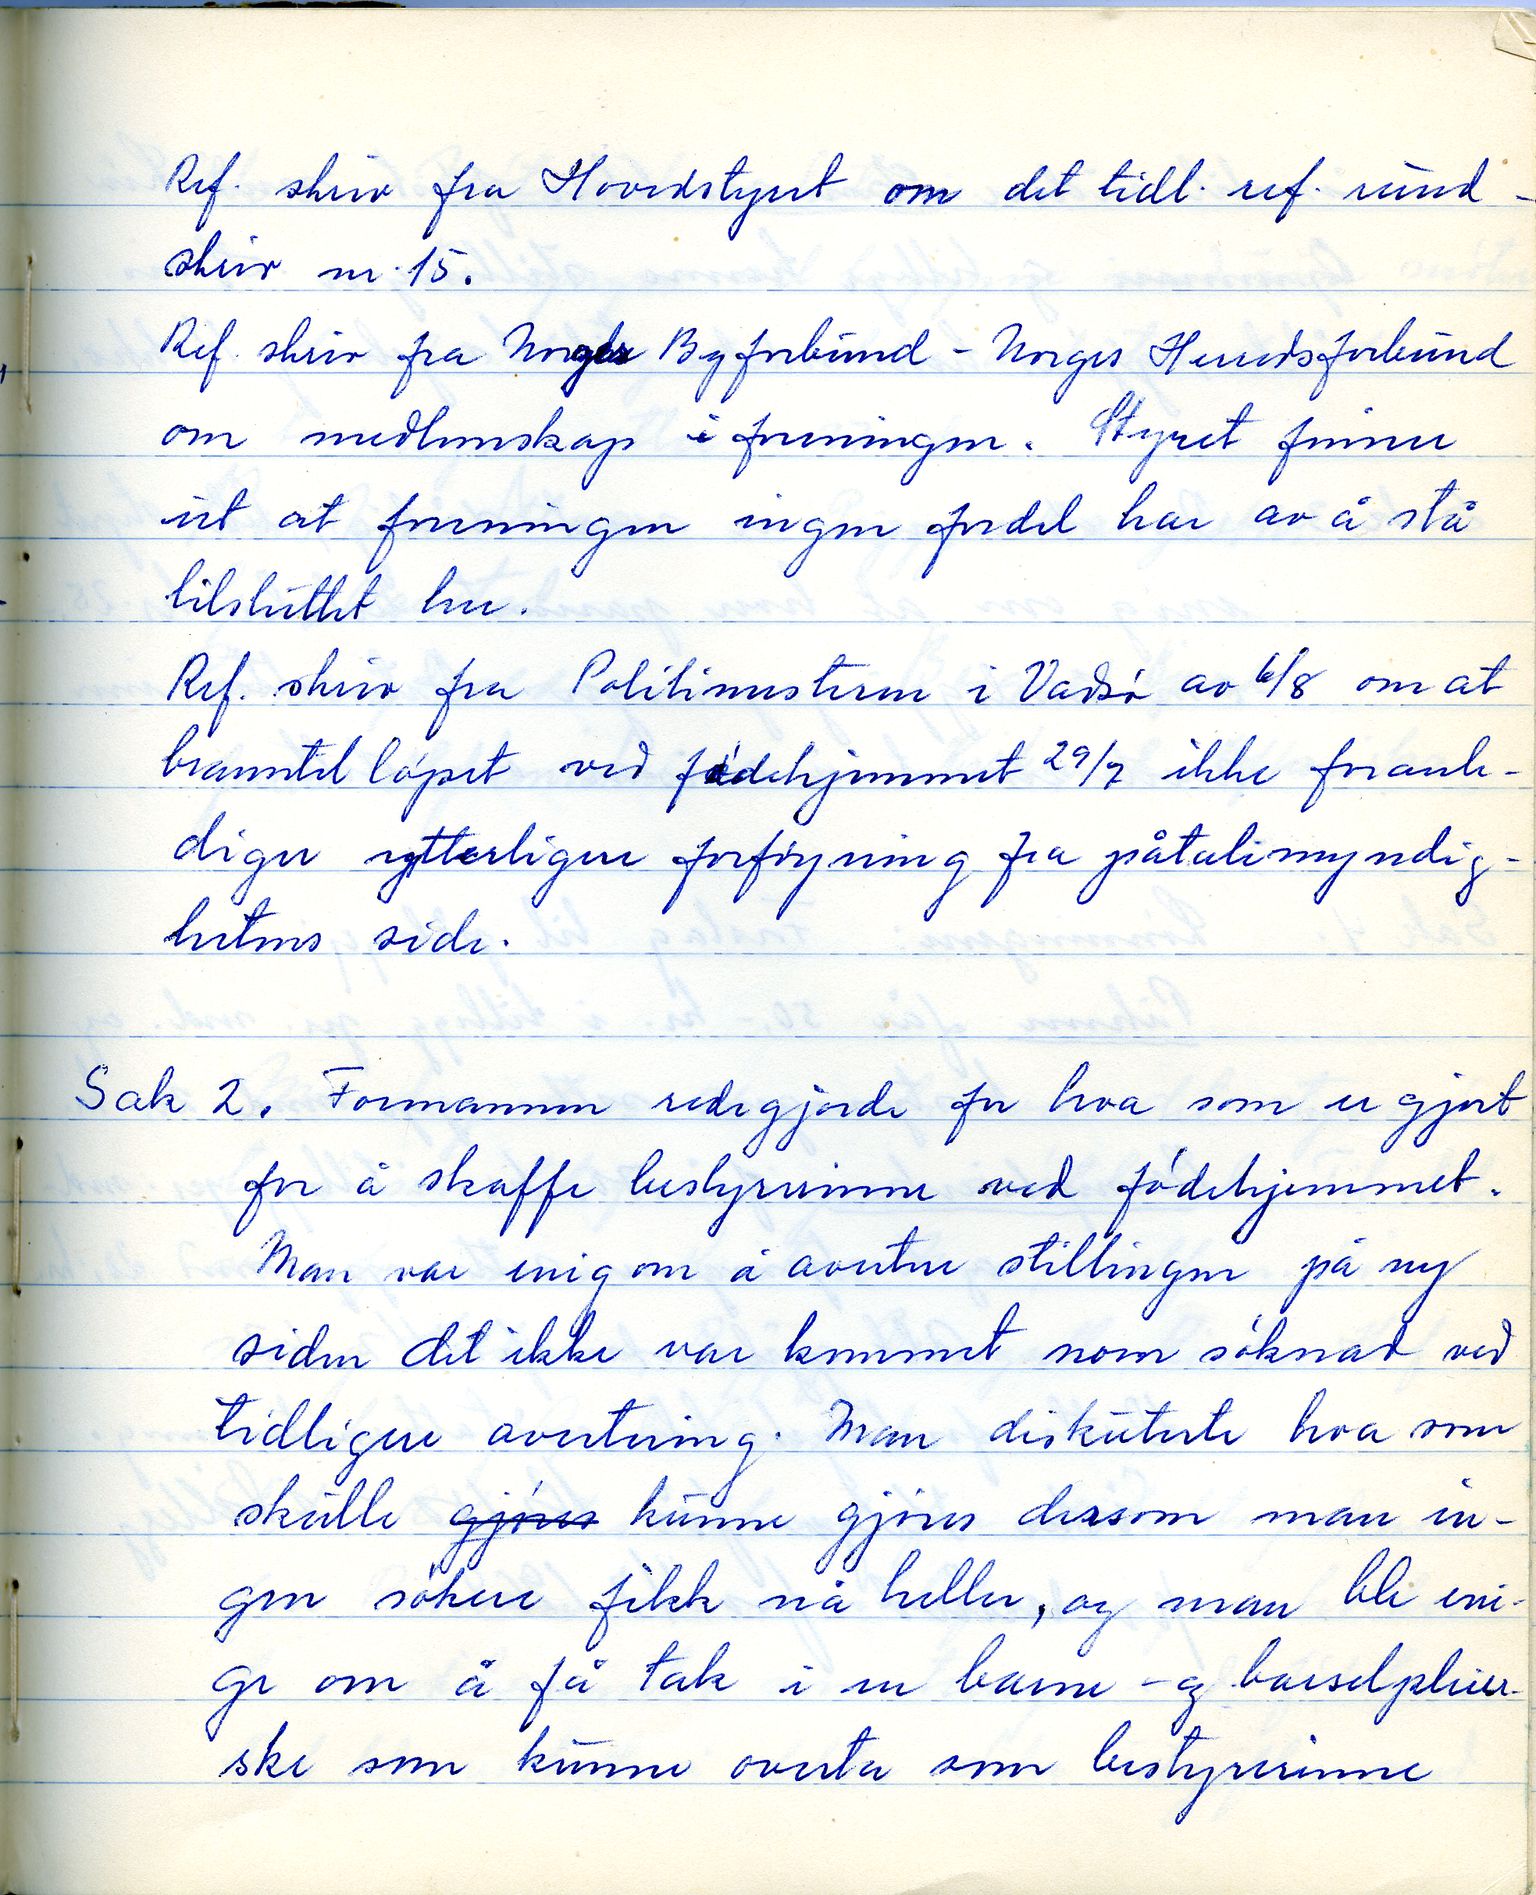 Ref. skriv fra Hovedstyret om det tidl. ref. rund-
skriv nr. 15.
Ref. skriv fra Norges Byforbund - Norges Herredsforbund
om medlemskap i foreningen. Styret finner
ut at foreningen ingen fordel har av å stå
tilsluttet her.
Ref. skriv fra Politimesteren i Vadsö av 6/8 om at
branntilløpet ved födehjemmet 29/7 ikke foranle-
diger ytterligere forföyning fra påtalemyndig-
hetens side.
Sak 2. Formannen redegjorde for hva som er gjort
for å skaffe bestyrerinne ved födehjemmet.
Man var enig om å avertere stillingen på ny
siden det ikke var kommet noen söknad ved
tidligere avertering. Man diskuterte hva som
skulle gjöres kunne gjöres dersom man in-
gen sökere fikk nå heller, og man ble eni-
ge om å få tak i en barne - og barselpleier-
ske som kunne overta som bestyrerinne